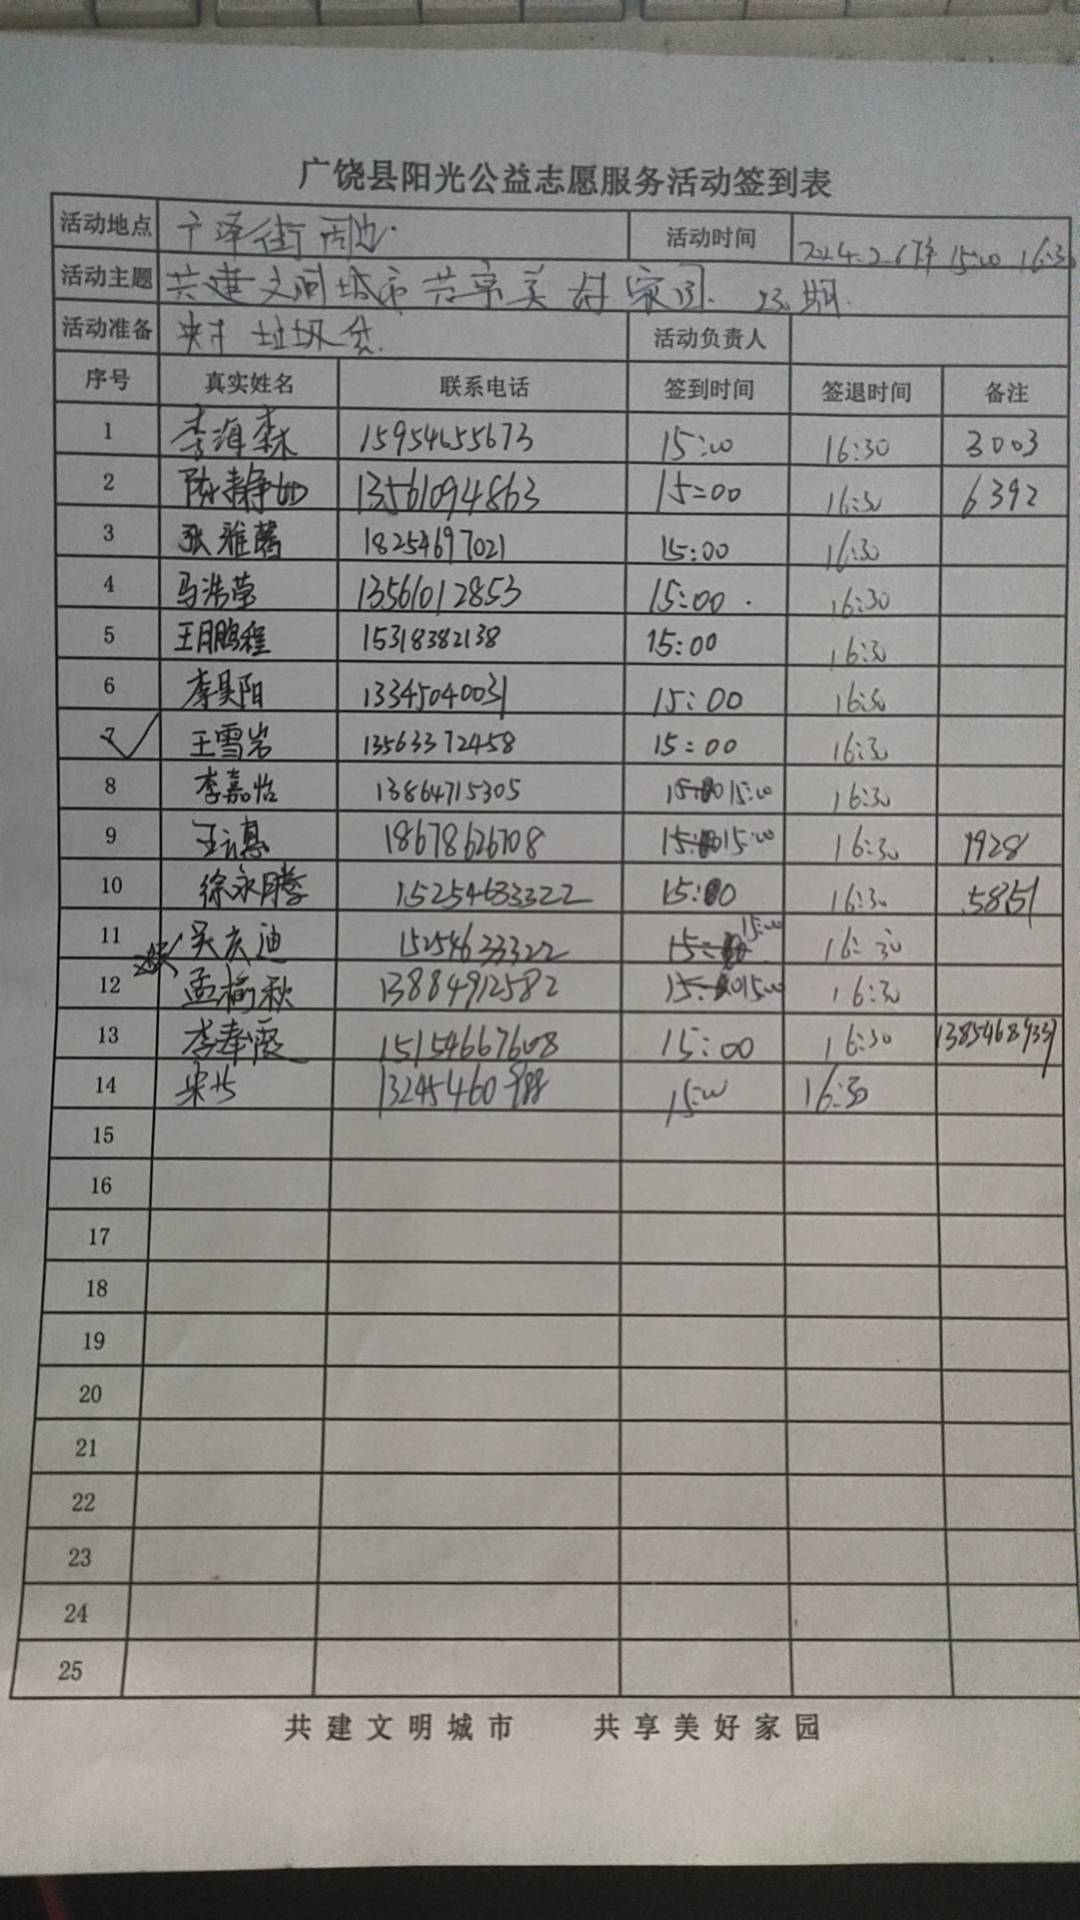 广饶县阳光公益志愿服务活动签到表
活动地点 广泽街周边. 活动时间 2024.2.6下午 15:00 16:30
活动主题 共建文明城市共享美好家园. 23期.
活动准备 夹子 垃圾袋. 活动负责人
序号 真实姓名 联系电话 签到时间 签退时间 备注
1 李海森 15954655673 15:00 16:30 3003
2 陈静如 13561094863 15:00 16:30 6392
3 张雅馨 18254697021 15:00 16:30
4 马浩莹 13561012853 15:00. 16:30
5 王鹏程 15318382138 15:00 16:30
6 李昊阳 13345040031 15:00 16:30
7 王雪岩 13563372458 15:00 16:30
8 李嘉怡 13864715305 15:00 16:30
9 18678626708 15:00 16:30 1928
10 徐永腾 15254633322 15:00 16:30 5851
11 吴庆迪 15254633322 15:00 16:30
12 孟榆秋 13884912582 15:00 16:30
13 李奉霞 15154667608 15:00 16:30
14 15:00 16:30
15
16
17
18
19
20
21
22
23
24
25
共建文明城市 共享美好家园